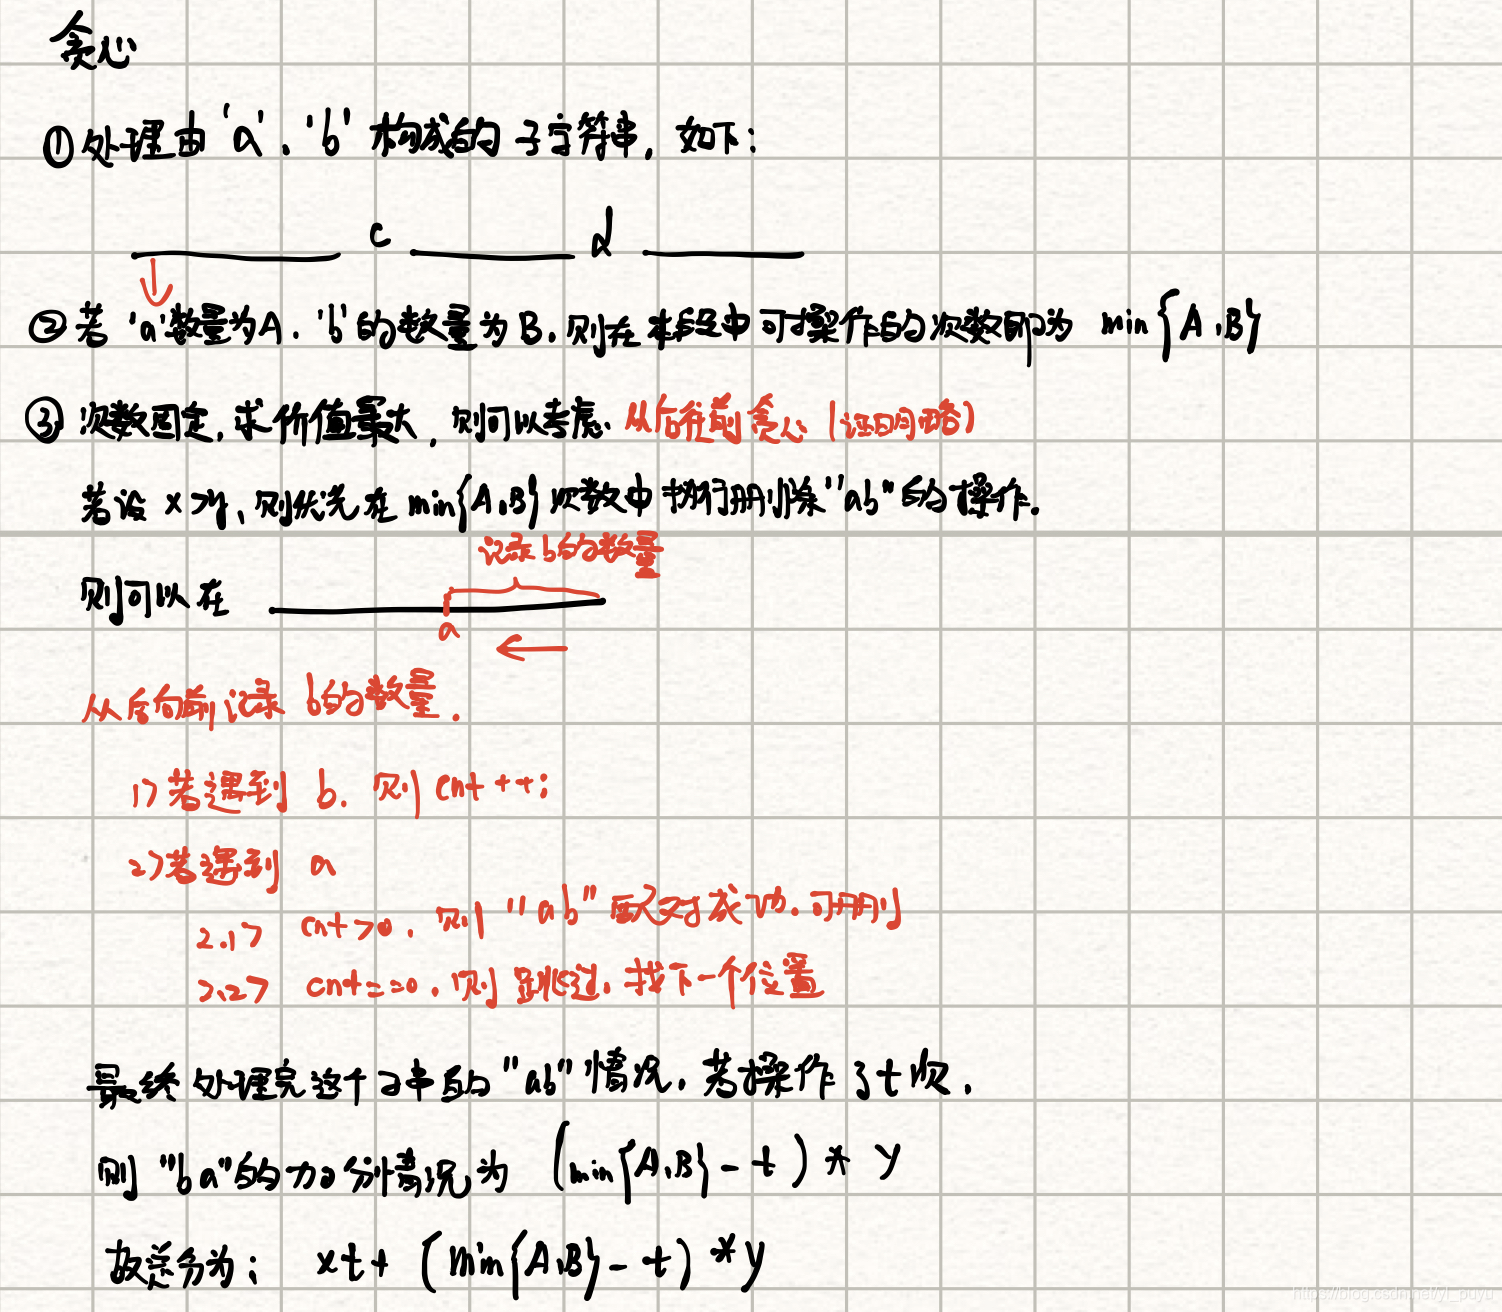 贪心
①处理由'a'、'b'构成的子字符串，如下：
c d
②若'a'数量为A、'b'的数量为B，则在本段中可操作的次数即为 min{A,B}
③次数固定，求价值最大，则可以考虑 从后往前贪心（证明略）
若设 x>y，则优先在 min{A,B} 次数中执行删除"ab"的操作。
记录b的数量
则可以在
a
从后向前记录 b的数量.
1>若遇到 b，则 cnt++;
2>若遇到 a
2.1> cnt>0，则"ab"配对成功，可删
2.2> cnt==0，则 跳过，找下一个位置
最终处理完这个子串的"ab"情况，若操作了t次，
则"ba"的加分情况为 (min{A,B}-t)*y
故总分为： xt+(min{A,B}-t)*y